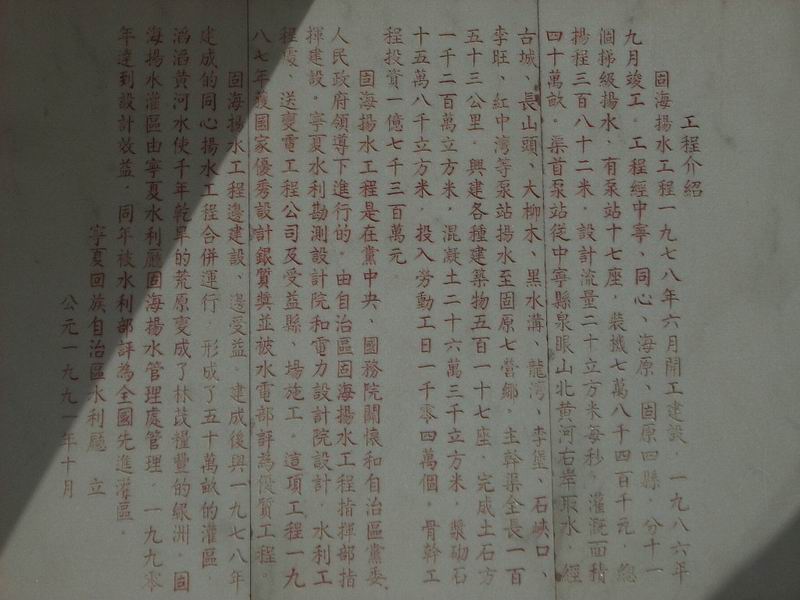 工程介紹
固海揚水工程一九七八年六月開工建設，一九八六年
九月竣工。工程經中寧、同心、海原、固原四縣，分十一
個梯級揚水，有泵站十七座，裝機七萬八千四百千元，總
揚程三百八十二米，設計流量二十立方米每秒，灌溉面積
四十萬畝。渠首泵站從中寧縣泉眼山北黃河右岸取水，經
古城、長山頭、大柳木、黑水溝、龍灣、李堡、石峽口、
李旺、紅中灣等泵站揚水至固原七營鄉。主幹渠全長一百
五十三公里，興建各種建築物五百一十七座，完成土石方
一千二百萬立方米，混凝土二十六萬三千立方米，漿砌石
十五萬八千立方米，投入勞動工日一千零四萬個，骨幹工
程投資一億七千三百萬元。
固海揚水工程是在黨中央、國務院關懷和自治區黨委、
人民政府領導下進行的。由自治區固海揚水工程指揮部指
揮建設。寧夏水利勘測設計院和電力設計院設計，水利工
程處、送變電工程公司及受益縣、場施工。這項工程一九
八七年獲國家優秀設計銀質獎並被水電部評為優質工程。
固海揚水工程邊建設、邊受益，建成後與一九七八年
建成的同心揚水工程合併運行，形成了五十萬畝的灌區，
滔滔黃河水使千年乾旱的荒原變成了林茂糧豐的綠洲。固
海揚水灌區由寧夏水利廳固海揚水管理處管理，一九九零
年達到設計效益，同年被水利部評為全國先進灌區。
寧夏回族自治區水利廳 立
公元一九九一年十月